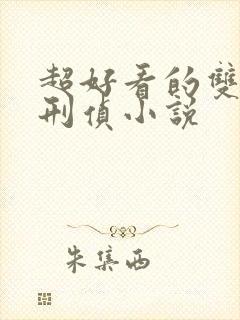 超好看的雙
刑偵小說
朱集西